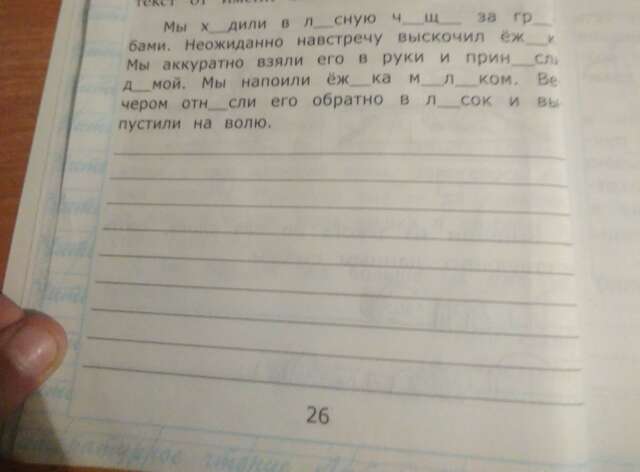 текст от имени
Мы х__дили в л__сную ч__щ__ за гр__
бами. Неожиданно навстречу выскочил ёж__к
Мы аккуратно взяли его в руки и прин__сли
д__мой. Мы напоили ёж__ка м__л__ком. Ве
чером отн__сли его обратно в л__сок и вы
пустили на волю.
26